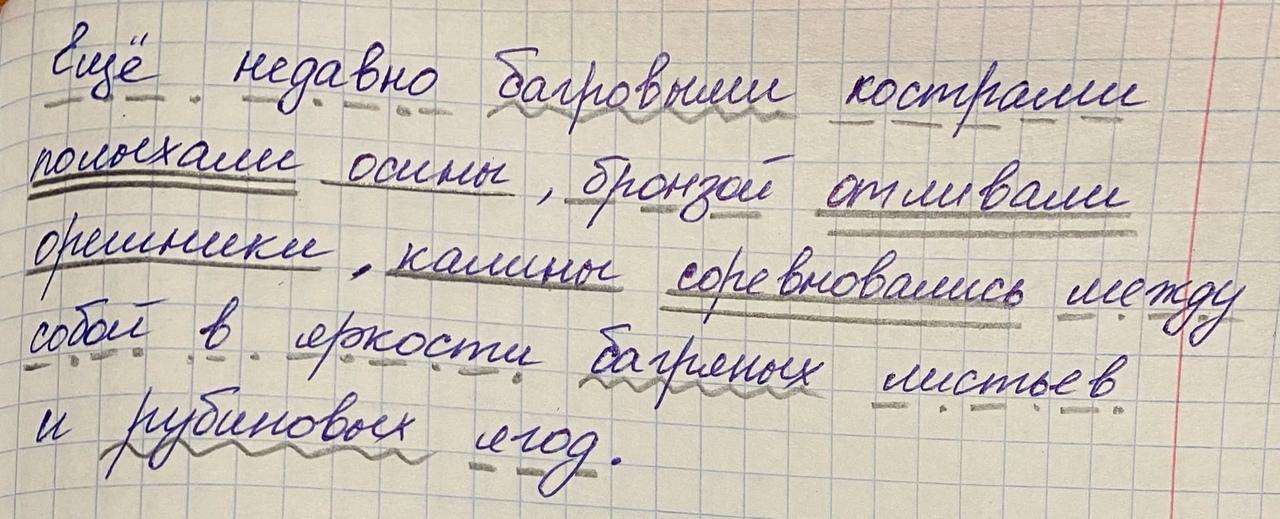 Ещё недавно багровыми кострами
полыхали осины, бронзой отливали
орешники, калины соревновались между
собой в яркости багряных листьев
и рубиновых ягод.